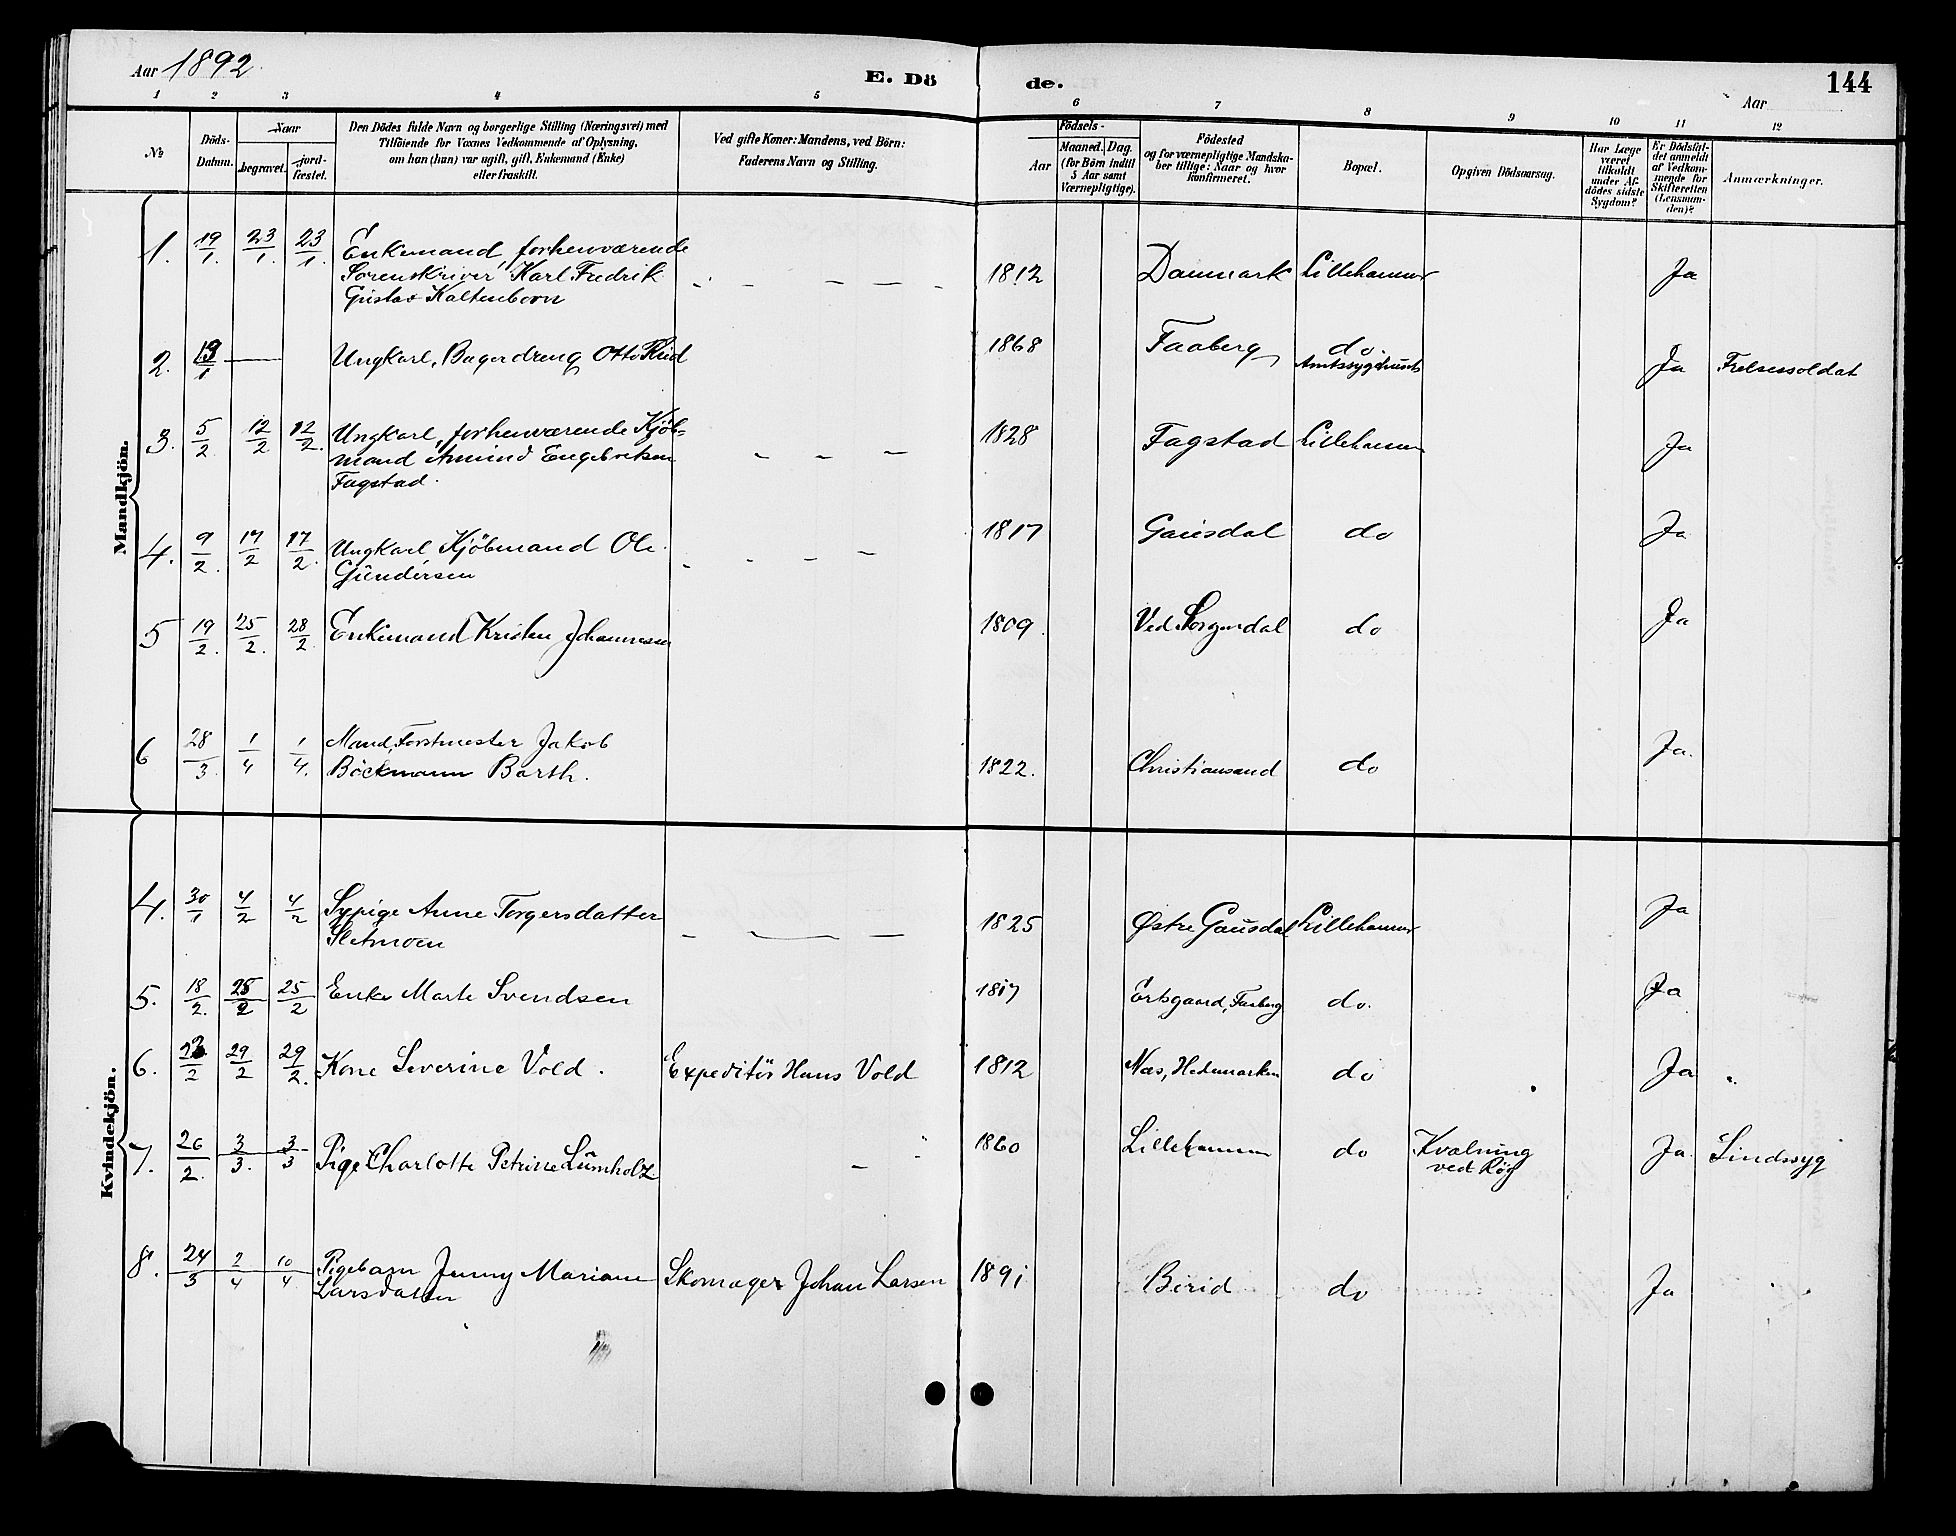 Aar 1892.
E. Dö
de.
144
Aar
1 2 3 4 5 6 7 8 9 10 11 12
№
Döds-
Datum.
Naar
begravet.
jord-
fæstet.
Den Dödes fulde Navn og borgerlige Stilling (Næringsvei) med
Tilföiende for Voxnes Vedkommende af Oplysning,
om han (hun) var ugift, gift, Enkemand (Enke)
eller fraskilt.
Ved gifte Koner: Mandens, ved Börn:
Faderens Navn og Stilling.
Födsels-
Aar
Maaned. Dag.
(for Börn indtil
5 Aar samt
Værnepligtige).
Födested
og for værnepligtige Mandska-
ber tillige: Naar og hvor
konfirmeret.
Bopæl.
Opgiven Dödsaarsag.
Har Læge
været
tilkaldt
under Af-
dödes sidste
Sygdom?
Er Dödsfal-
det anmeldt
af Vedkom-
mende for
Skifteretten
(Lensman-
den)?
Anmærkninger.
Mandkjön.
1. 19/1. 23/1. 23/1. Enkemand, forhenværende
Sorenskriver Karl Fredrik
Gustav Kaltenborn
1812 Danmark Lillehammer Ja
2. 19/1 — Ungkarl, Bagerdreng Otto Rud
1868 Faaberg do.
Amtssygehuset
Ja Frelsessoldat
3. 5/2 12/2 12/2. Ungkarl, forhenværende Kjöb-
mand Amund Engebretsen
Fagstad.
– – – 1828 Fagstad Lillehammer Ja
4. 9/2. 17/2 17/2. Ungkarl Kjöbmand Ole
Gundersen
1817 Gausdal do Ja
5 19/2. 25/2. 28/2 Enkemand Kristen Johannessen
1809 Ved do Ja
6 28/3. 1/4 1/4. Mand, Forstmester Jakob
Böckmann Barth.
1822. Christiansand do Ja.
Kvindekjön.
4. 30/1 4/2 4/2 Sypige Anne Torgersdatter
Sletmoen
1825 Østre Gausdal Lillehammer Ja
5. 18/2. 25/2 25/2 Enke Marte Svendsen
1817 Faaberg do. Ja
6. 22/2 29/2 29/2. Kone Severine Vold. Expeditör Hans Vold
1812 Næs, Hedemarken do Ja
7. 26/2. 3/3. 3/3 Pige Charlotte Petrine Lumholz.
1860 Lillehammer do Kvælning
ved Røg
Ja. Sindssyg
8. 24/3 2/4 10/4 Pigebarn Jenny Mariane
Larsdatter
Skomager Johan Larsen 1891 Birid do Ja